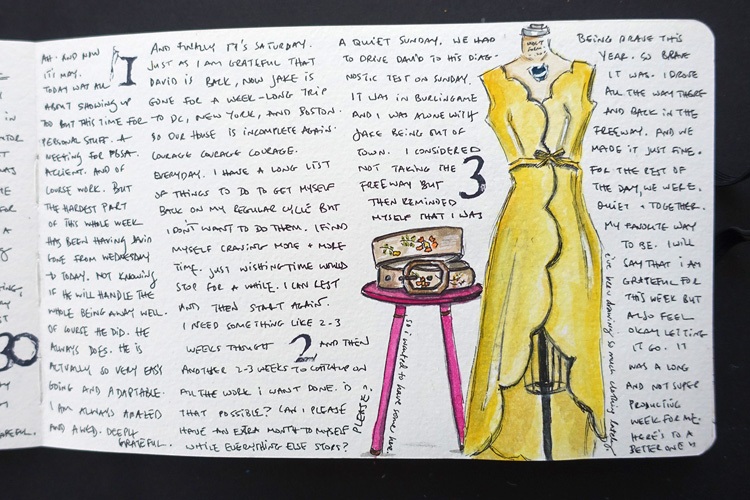 AH. AND NOW
IT'S MAY.
TODAY WAS ALL
ABOUT SHOWING UP
TOO BUT THIS TIME FOR
PERSONAL STUFF. A
MEETING FOR PBSA.
A CLIENT. AND OF
COURSE WORK. BUT
THE HARDEST PART
OF THIS WHOLE WEEK
HAS BEEN HAVING DAVID
GONE FROM WEDNESDAY
TO TODAY. NOT KNOWING
IF HE WILL HANDLE THE
WHOLE BEING AWAY WELL.
OF COURSE HE DID. HE
ALWAYS DOES. HE IS
ACTUALLY SO VERY EASY
GOING AND ADAPTABLE.
I AM ALWAYS AMAZED
AND AWED. DEEPLY
GRATEFUL.
1
AND FINALLY IT'S SATURDAY.
JUST AS I AM GRATEFUL THAT
DAVID IS BACK, NOW JAKE IS
GONE FOR A WEEK-LONG TRIP
TO DC, NEW YORK, AND BOSTON.
SO OUR HOUSE IS INCOMPLETE AGAIN.
COURAGE COURAGE COURAGE.
EVERYDAY. I HAVE A LONG LIST
OF THINGS TO DO TO GET MYSELF
BACK ON MY REGULAR CYCLE BUT
I DON'T WANT TO DO THEM. I FIND
MYSELF CRAVING MORE + MORE
TIME. JUST WISHING TIME WOULD
STOP FOR A WHILE. I CAN REST
AND THEN START AGAIN.
I NEED SOMETHING LIKE 2-3
WEEKS THOUGHT 2 AND THEN
ANOTHER 2-3 WEEKS TO CATCH UP ON
ALL THE WORK I WANT DONE. IS
THAT POSSIBLE? CAN I PLEASE
HAVE AN EXTRA MONTH TO MYSELF
WHILE EVERYTHING ELSE STOPS?
PLEASE?
A QUIET SUNDAY. WE HAD
TO DRIVE DAVID TO HIS DIAG-
NOSTIC TEST ON SUNDAY.
IT WAS IN BURLINGAME
AND I WAS ALONE WITH
JAKE BEING OUT OF
TOWN. I CONSIDERED
NOT TAKING THE
FREEWAY BUT
THEN REMINDED
MYSELF THAT I WAS
3
BEING BRAVE THIS
YEAR. SO BRAVE
IT WAS. I DROVE
ALL THE WAY THERE
AND BACK IN THE
FREEWAY. AND WE
MADE IT JUST FINE.
FOR THE REST OF
THE DAY, WE WERE
QUIET + TOGETHER.
MY FAVORITE WAY
TO BE. I WILL
SAY THAT I AM
GRATEFUL FOR
THIS WEEK BUT
ALSO FEEL
OKAY LETTING
IT GO. IT
WAS A LONG
AND NOT SUPER
PRODUCTIVE
WEEK FOR ME.
HERE'S TO A
BETTER ONE
so wanted to have some fun
i've been drawing so much clothing lately
30